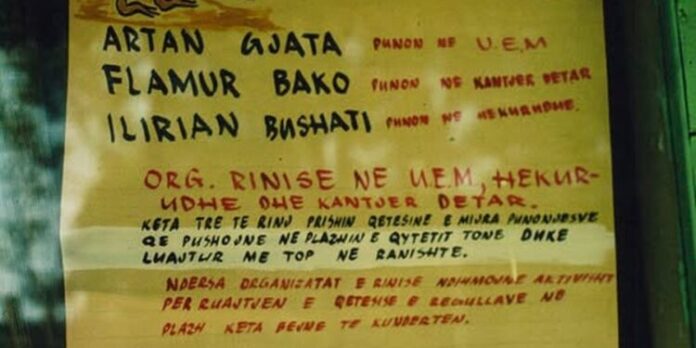 ARTAN GJATA PUNON NE U.E.M
FLAMUR BAKO PUNON NE KANTJER DETAR
ILIRIAN BUSHATI PUNON NE HEKURUDHE.
ORG. RINISE NE U.E.M, HEKUR-
UDHE DHE KANTJER DETAR.
KETA TRE TE RINJ PRISHIN QETESINE E MIJRA PUNONJESVE
QE PUSHOJNE NE PLAZHIN E QYTETIT TONE DUKE
LUAJTUR ME TOP NE RANISHTE.
NDERSA ORGANIZATAT E RINISE NDIHMOJNE AKTIVISHT
PER RUAJTJEN E QETESISE E RREGULLAVE NE
PLAZH KETA BEJNE TE KUNDERTEN.